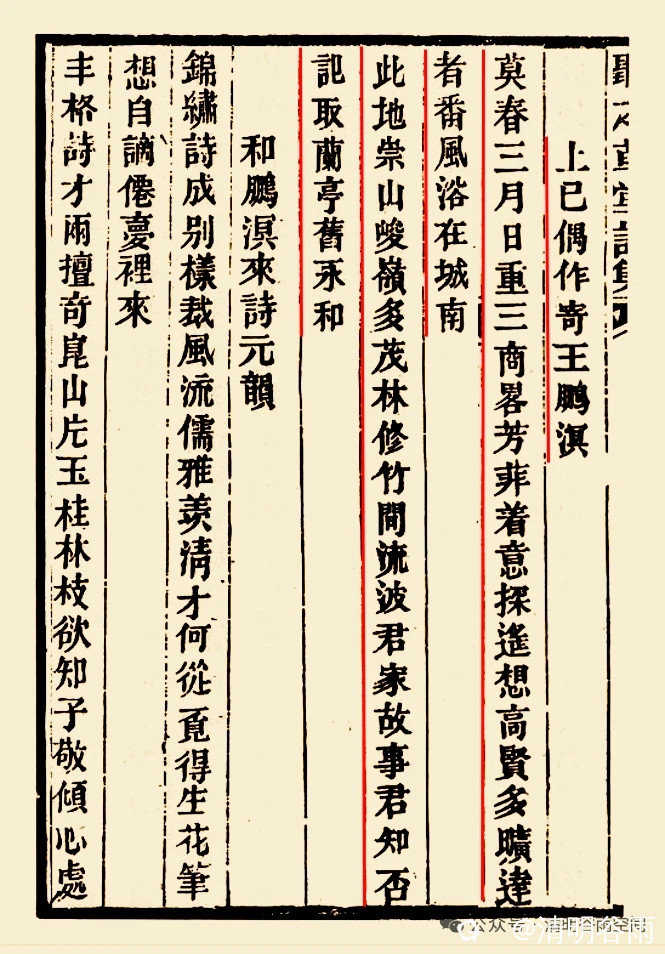 上巳偶作寄王鵬溟
莫春三月日重三商畧芳菲着意探遙想高賢多曠達
者番風浴在城南
此地崇山峻嶺多茂林修竹間流波君家故事君知否
記取蘭亭舊永和
和鵬溟來詩元韻
錦繡詩成别樣裁風流儒雅羨清才何從覓得生花筆
想自謫僊夢裡來
丰格詩才兩擅奇崑山片玉桂林枝欲知子敬傾心處
公众号·清明谷雨空间
@清明谷雨